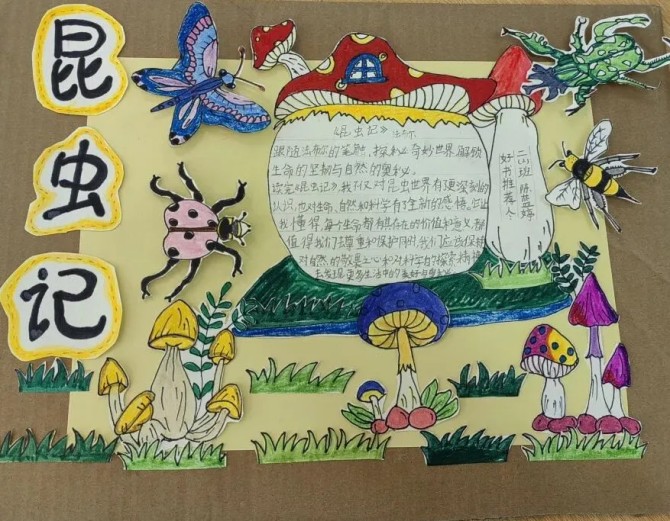 昆
虫
记
《昆虫记》 法布尔
跟随法布尔的笔触,探秘奇妙世界,解锁
生命的坚韧与自然的奥秘。
读完《昆虫记》,我不仅对昆虫世界有了更深刻的
认识,也对生命、自然和科学有了全新的感悟。
我懂得,每个生命都有其存在的价值和意义,都
值得我们去尊重和保护。同时,我们应该保持
对自然的敬畏之心和对科学的探索精神,
去发现更多生活中的美好与奥秘。
好书推荐人
二(1)班 陈